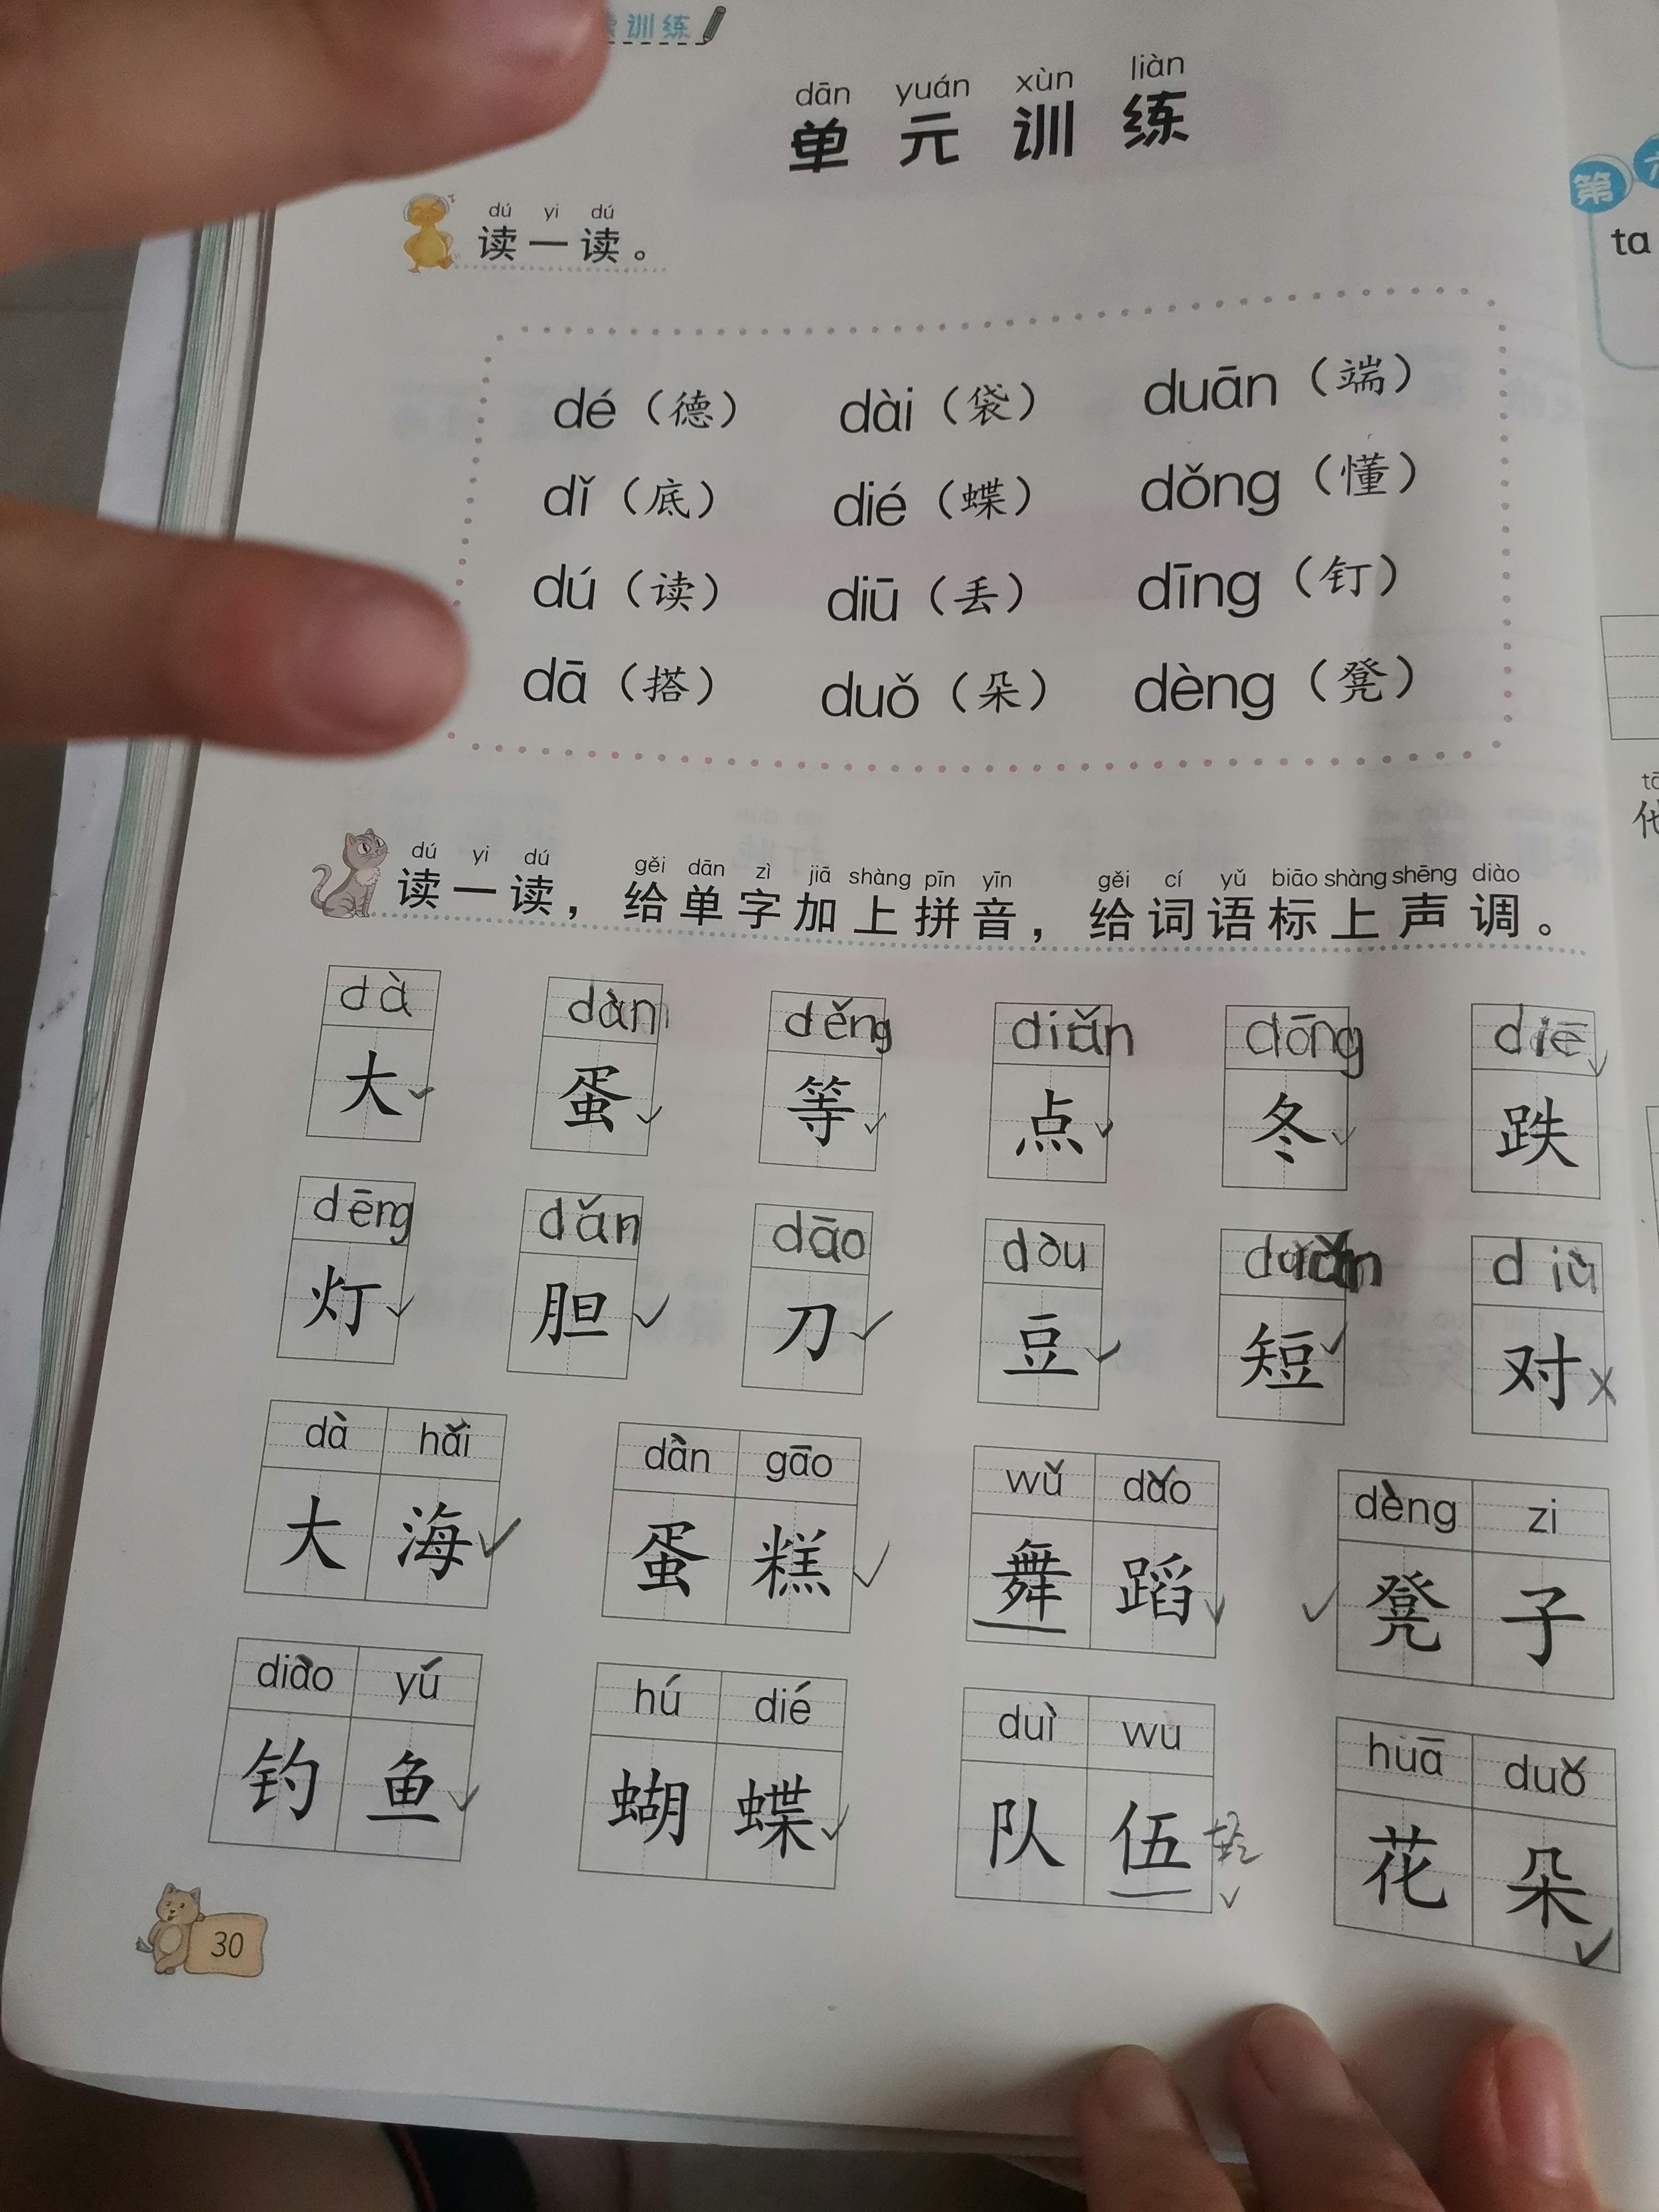 训练
dān yuán xùn liàn
单元训练
第
ta
dú yi dú
读一读。
dé（德） dài（袋） duān（端）
dǐ（底） dié（蝶） dǒng（懂）
dú（读） diū（丢） dīng（钉）
dā（搭） duǒ（朵） dèng（凳）
dú yi dú gěi dān zì jiā shàng pīn yīn gěi cí yǔ biāo shàng shēng diào
读一读，给单字加上拼音，给词语标上声调。
dà dàn děng diǎn dōng diē
大 蛋 等 点 冬 跌
dēng dǎn dāo dòu duǎn diù
灯 胆 刀 豆 短 对
dà hǎi dàn gāo wǔ dǎo dèng zi
大海 蛋糕 舞蹈 凳子
diào yú hú dié duì wu huā duǒ
钓鱼 蝴蝶 队伍 花朵
30